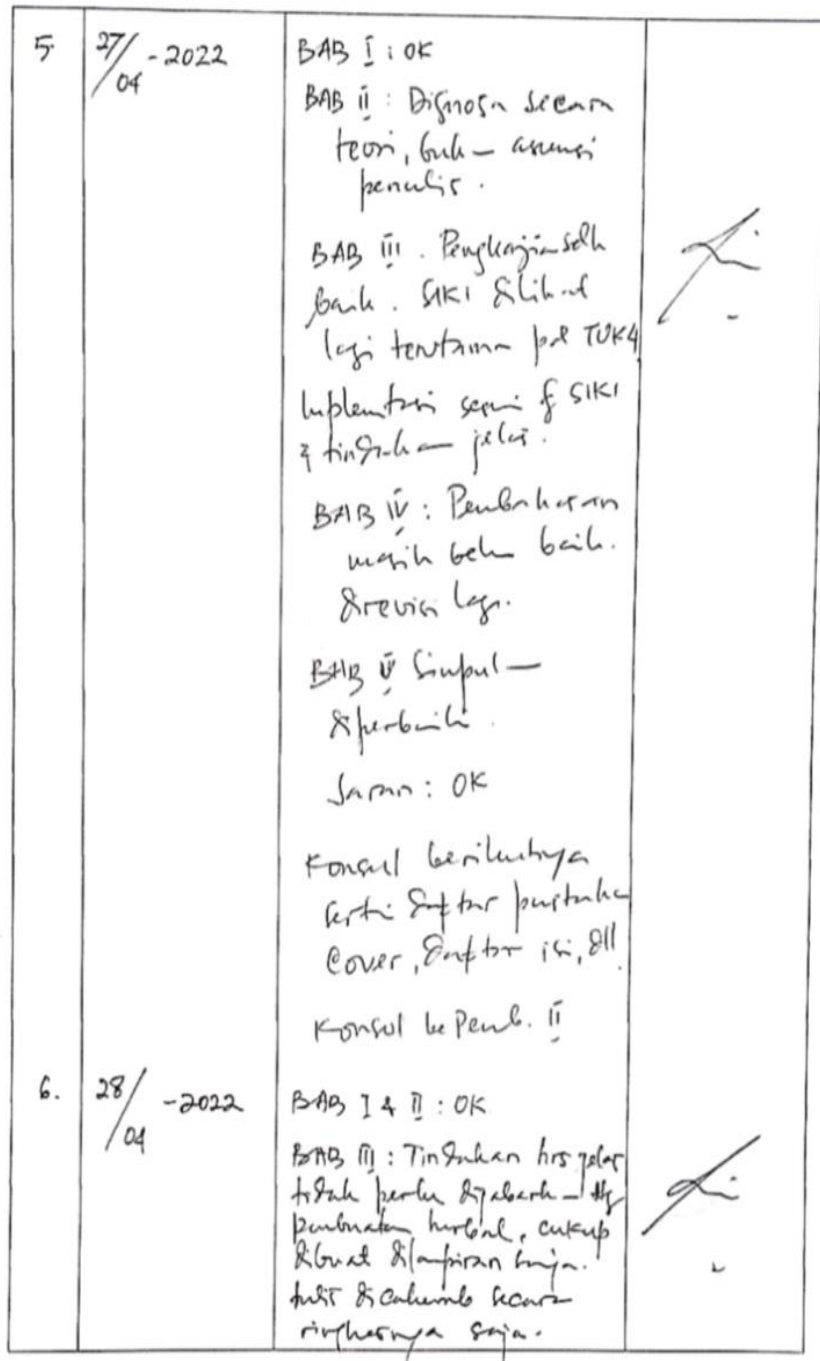 5. 27/04 - 2022 BAB I : OK
BAB II : Dignosa secara
teori, buk— asumsi
penulis.
BAB III . Pengkajian sdh
baik. SIKI dilihat
lagi terutama pd TUK4
Implemtasi sesuai SIKI
& tindakan jelas.
BAB IV : Pembahasan
masih belum baik.
direvisi lagi.
BAB V Simpul—
diperbaiki.
Saran : OK
Konsul berikutnya
serta daftar pustaka
Cover, daftar isi, dll
Konsul ke Pemb. II
6. 28/04 - 2022 BAB I & II : OK
BAB III : Tindakan hrs jelas
tidak perlu dijabark— ttg
pembuatan herbal, cukup
dibuat dilampiran saja.
secara
ringkasnya saja.